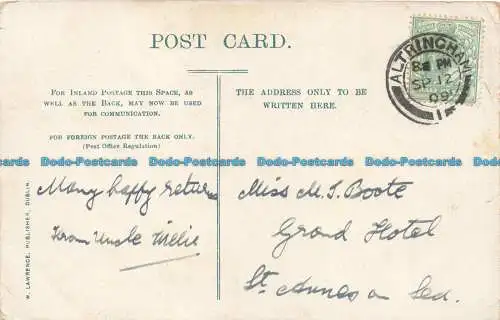 POST CARD.
FOR INLAND POSTAGE THIS SPACE, AS
WELL AS THE BACK, MAY NOW BE USED
FOR COMMUNICATION.
FOR FOREIGN POSTAGE THE BACK ONLY.
(Post Office Regulation)
THE ADDRESS ONLY TO BE
WRITTEN HERE.
ALTRINCHAM
8 PM
SP 12
09
Dodo-Postcards Dodo-Postcards Dodo-Postcards Dodo-Postcards Dodo-Postcards
Many happy returns
from Uncle Willie
Miss M. J. Boote
Grand Hotel
St Annes on Sea.
W. LAWRENCE, PUBLISHER, DUBLIN.
Dodo-Postcards Dodo-Postcards Dodo-Postcards Dodo-Postcards Dodo-Postcards